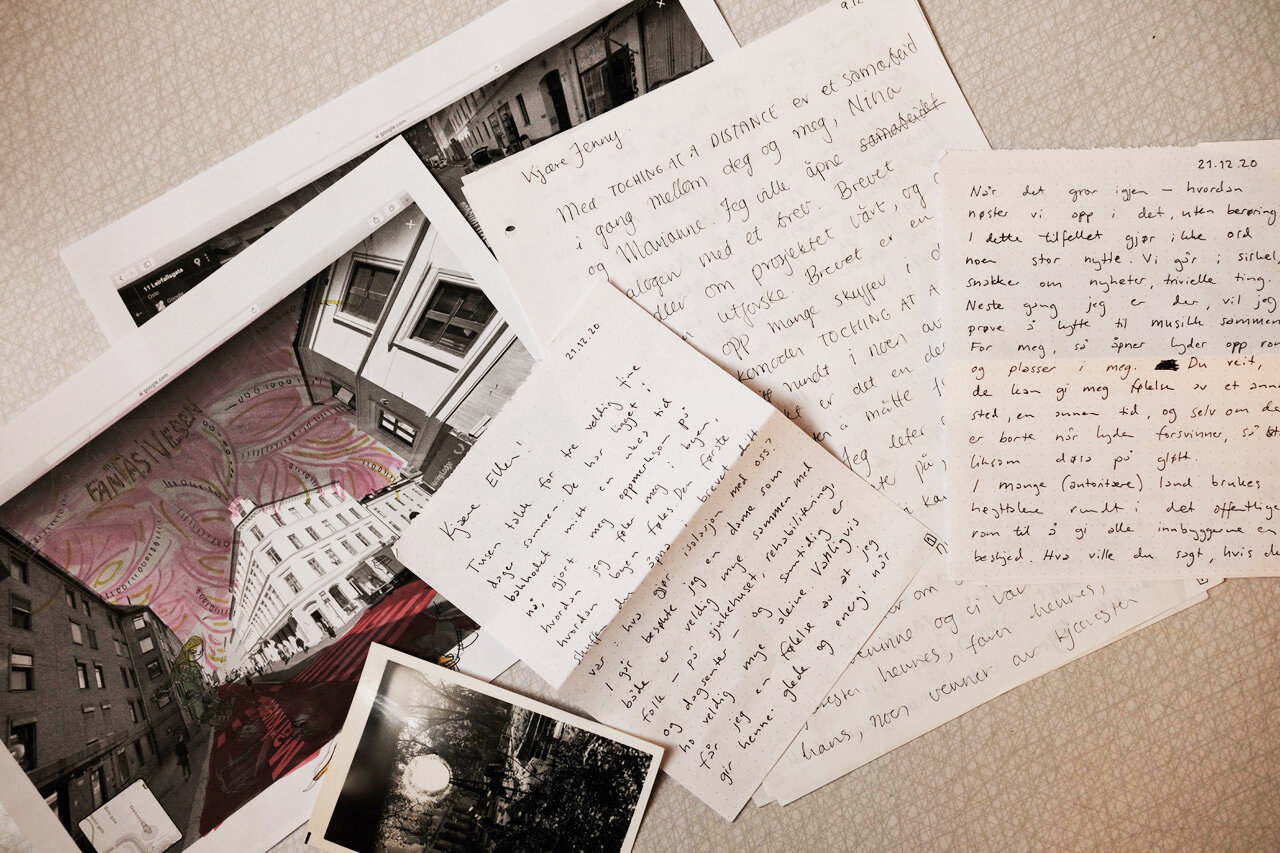 google.com
11 Leirfallsgata
Oslo
Google
google.com
FANTASIVESEN
9.12
Kjære Jenny
Med TOCHING AT A DISTANCE er et samarbeid
i gang mellom deg og meg, Nina
og Marianne. Jeg ville åpne samarbeidet
dialogen med et brev. Brevet
om prosjektet vårt, og
utforske. Brevet er en
opp mange skuffer i d
komoden TOCHING AT A
rundt i noen av
er det en de
å måtte f
Jeg leter
på
er om
venninne og ei var
søster hennes, faren hennes,
hans, noen venner av kjæresten
21.12.20
Kjære Ellen!
Tusen takk for tre veldig fine
dager sammen. De har ligget i
bakhodet mitt en ukes tid
nå, gjort meg oppmerksom på
hvordan jeg føler meg i byen
hvordan byen føles. Den første
skuffe brevet ditt
var: hva gjør isolasjon med oss?
I går besøkte jeg en dame som
både er veldig mye sammen med
folk – på sjukehuset, rehabilitering,
og dagsenter – og samtidig er
ho veldig mye aleine. Vanligvis
får jeg en følelse av at jeg
gir henne glede og energi når
21.12.20
Når det gror igjen – hvordan
nøster vi opp i det, uten berøring
I dette tilfellet gjør ikke ord
noen stor nytte. Vi går i sirkel,
snakker om nyheter, trivielle ting.
Neste gang jeg er der, vil jeg
prøve å lytte til musikk sammen
For meg, så åpner lyder opp rom
og plasser i meg. Du veit,
de kan gi meg følelse av et anne
sted, en annen tid, og selv om de
er borte når lyden forsvinner, så st
liksom døra på gløtt.
I mange (autoritære) land brukes
høyttalere rundt i det offentlige
rom til å gi alle innbyggerne en
beskjed. Hva ville du sagt, hvis du